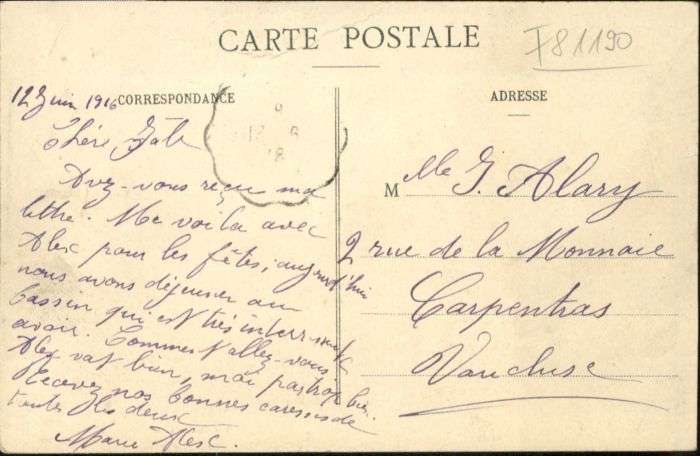 CARTE POSTALE
F81190
CORRESPONDANCE
ADRESSE
12 Juin 1916
Chère Gab
Avez-vous reçu ma
lettre. Me voila avec
Alex pour les fêtes; aujourd'hui
nous avons déjeuner au
bassin qui est très interressente
avoir. Comment allez-vous
Alex vat bien, moi pas trop bien.
Recevez nos bonnes caresses de
toutes les deux
Marie Alex.
Mlle G. Alary
2 rue de la Monnaie
Carpentras
Vaucluse